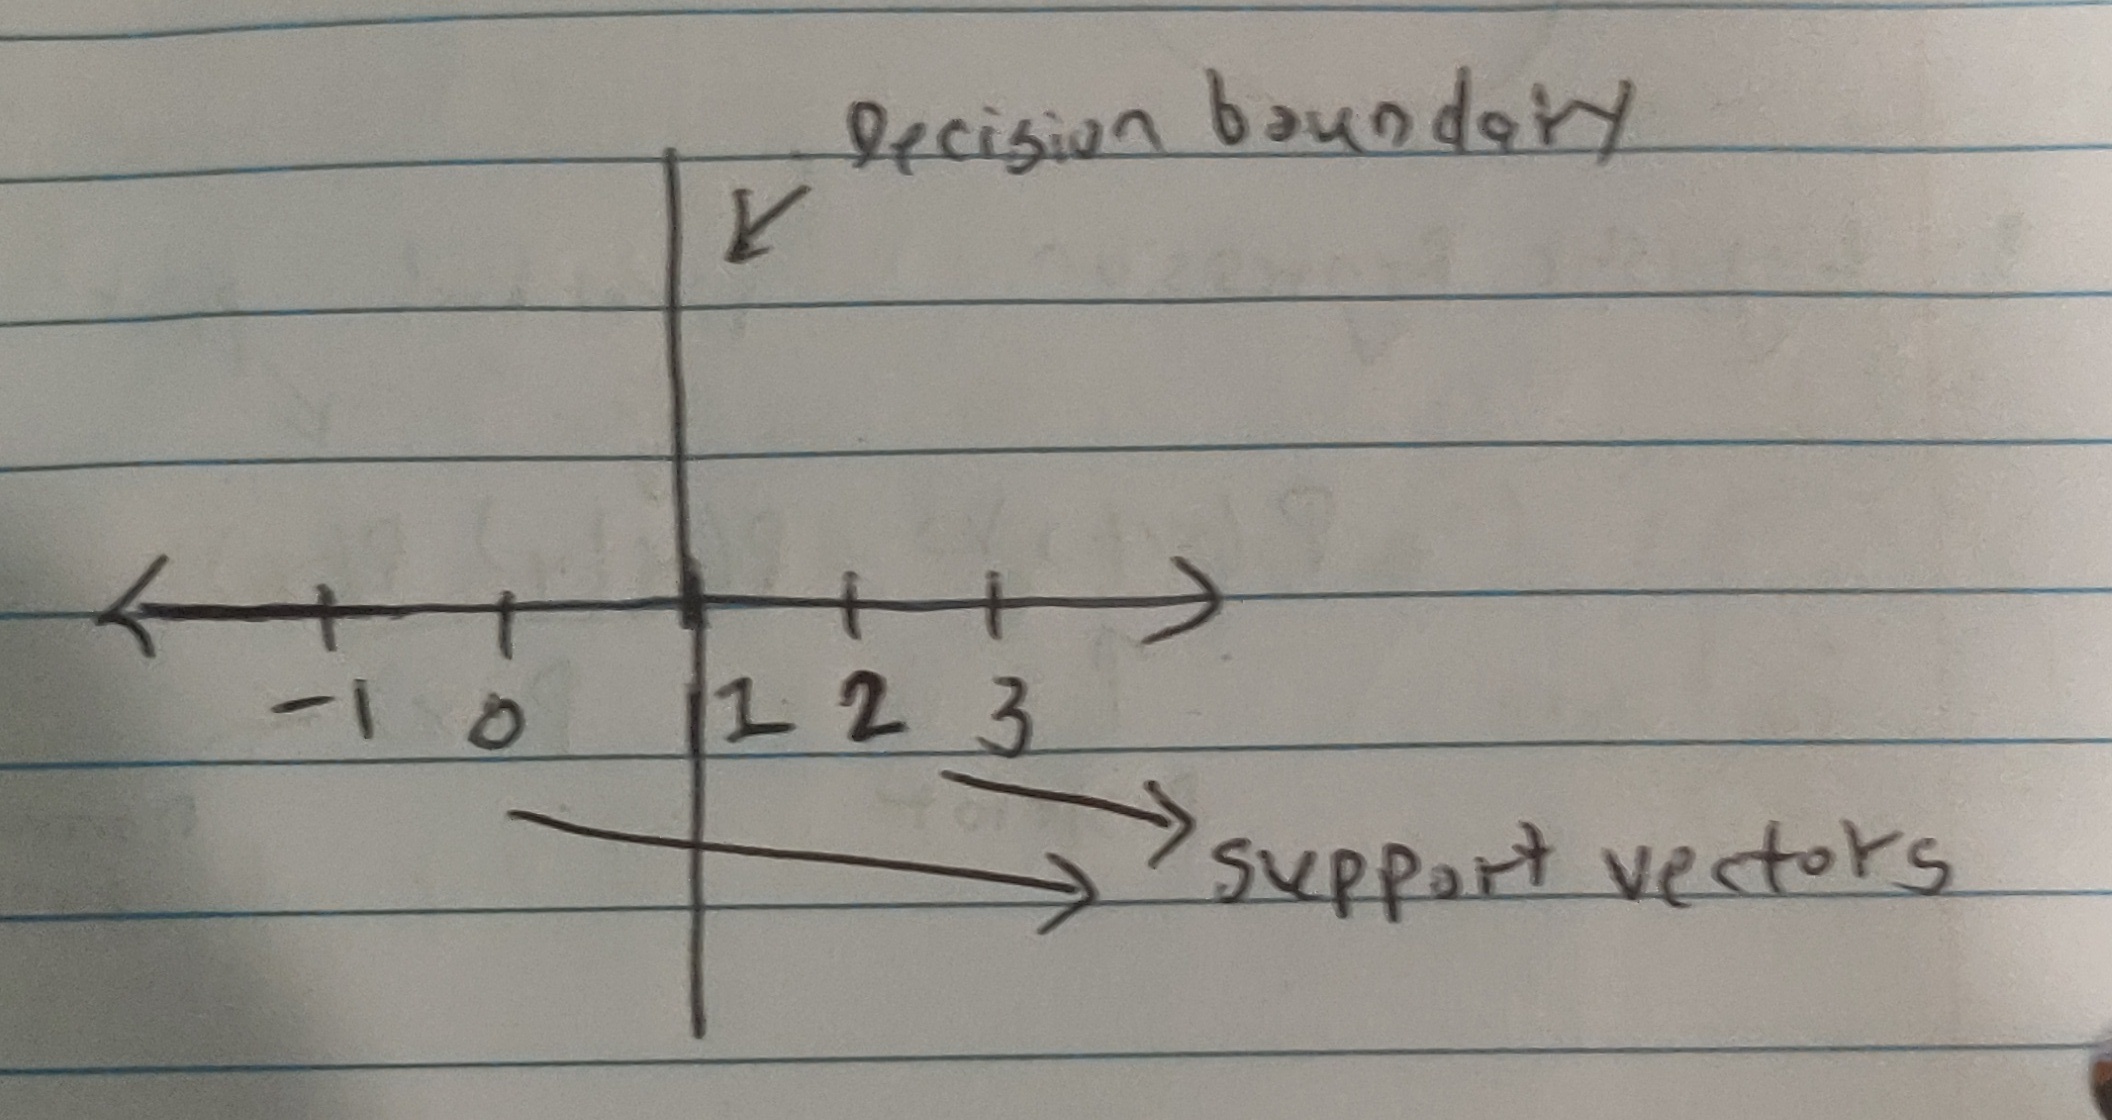 Decision boundary
-1 0 1 2 3
support vectors